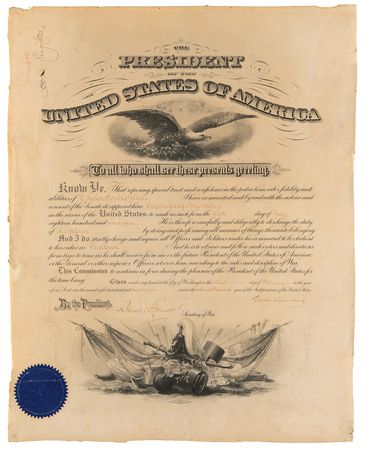 THE
PRESIDENT
OF THE
UNITED STATES OF AMERICA
To all who shall see these presents greeting:
Know Ye, That reposing special trust and confidence in the patriotism, valor, fidelity and
abilities of I have nominated and by and with the advice and
consent of the Senate do appoint him Captain of
in the service of the United States: to rank as such from the day of
eighteen hundred and He is therefore carefully and diligently to discharge the duty
of Captain by doing and performing all manner of things thereunto belonging.
And I do strictly charge and require all Officers and Soldiers under his command to be obedient
to his orders as Captain And he is to observe and follow such orders and directions
from time to time as he shall receive from me or the future President of the United States of America:
or the General or other superior Officers set over him according to the rules and discipline of War.
This Commission to continue in force during the pleasure of the President of the United States for
the time being.
Given under my hand at the City of Washington this day of in the year
of our Lord one thousand eight hundred and and in the year of the Independence of the United States.
By the President:
Secretary of War.